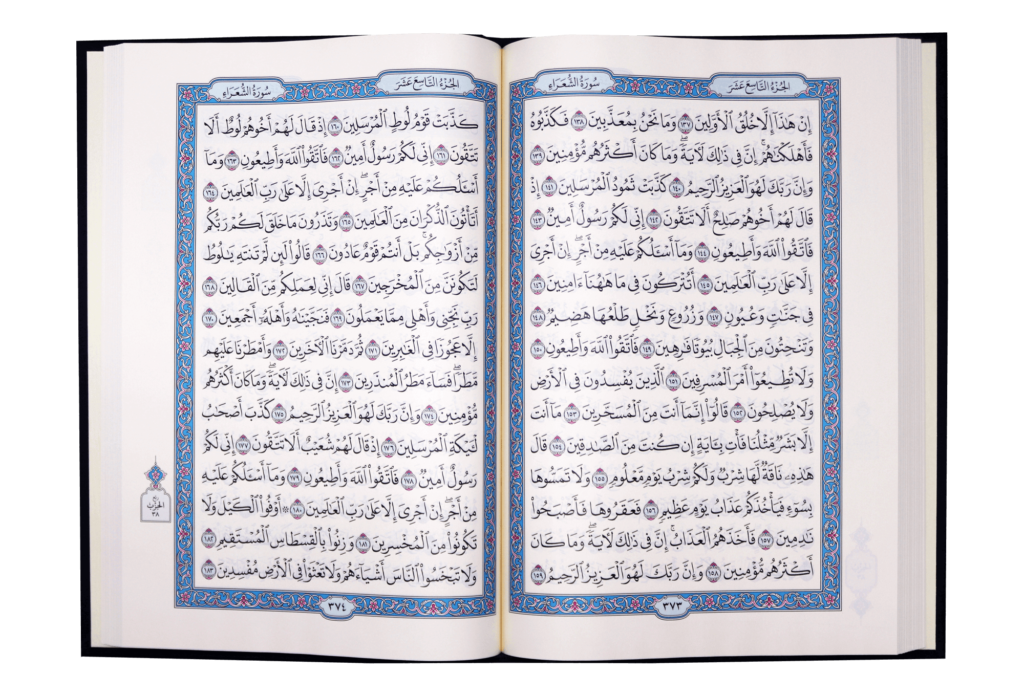 الجزء التاسع عشر
سورة الشعراء
إِنْ هَٰذَآ إِلَّا خُلُقُ ٱلْأَوَّلِينَ ١٣٧ وَمَا نَحْنُ بِمُعَذَّبِينَ ١٣٨ فَكَذَّبُوهُ
فَأَهْلَكْنَٰهُمْ إِنَّ فِى ذَٰلِكَ لَءَايَةً وَمَا كَانَ أَكْثَرُهُم مُّؤْمِنِينَ ١٣٩
وَإِنَّ رَبَّكَ لَهُوَ ٱلْعَزِيزُ ٱلرَّحِيمُ ١٤٠ كَذَّبَتْ ثَمُودُ ٱلْمُرْسَلِينَ ١٤١ إِذْ
قَالَ لَهُمْ أَخُوهُمْ صَٰلِحٌ أَلَا تَتَّقُونَ ١٤٢ إِنِّى لَكُمْ رَسُولٌ أَمِينٌ ١٤٣
فَٱتَّقُوا۟ ٱللَّهَ وَأَطِيعُونِ ١٤٤ وَمَآ أَسْـَٔلُكُمْ عَلَيْهِ مِنْ أَجْرٍ إِنْ أَجْرِىَ
إِلَّا عَلَىٰ رَبِّ ٱلْعَٰلَمِينَ ١٤٥ أَتُتْرَكُونَ فِى مَا هَٰهُنَآ ءَامِنِينَ ١٤٦
فِى جَنَّٰتٍ وَعُيُونٍ ١٤٧ وَزُرُوعٍ وَنَخْلٍ طَلْعُهَا هَضِيمٌ ١٤٨
وَتَنْحِتُونَ مِنَ ٱلْجِبَالِ بُيُوتًا فَٰرِهِينَ ١٤٩ فَٱتَّقُوا۟ ٱللَّهَ وَأَطِيعُونِ ١٥٠
وَلَا تُطِيعُوٓا۟ أَمْرَ ٱلْمُسْرِفِينَ ١٥١ ٱلَّذِينَ يُفْسِدُونَ فِى ٱلْأَرْضِ
وَلَا يُصْلِحُونَ ١٥٢ قَالُوٓا۟ إِنَّمَآ أَنتَ مِنَ ٱلْمُسَحَّرِينَ ١٥٣ مَآ أَنتَ
إِلَّا بَشَرٌ مِّثْلُنَا فَأْتِ بِـَٔايَةٍ إِن كُنتَ مِنَ ٱلصَّٰدِقِينَ ١٥٤ قَالَ
هَٰذِهِۦ نَاقَةٌ لَّهَا شِرْبٌ وَلَكُمْ شِرْبُ يَوْمٍ مَّعْلُومٍ ١٥٥ وَلَا تَمَسُّوهَا
بِسُوٓءٍ فَيَأْخُذَكُمْ عَذَابُ يَوْمٍ عَظِيمٍ ١٥٦ فَعَقَرُوهَا فَأَصْبَحُوا۟
نَٰدِمِينَ ١٥٧ فَأَخَذَهُمُ ٱلْعَذَابُ إِنَّ فِى ذَٰلِكَ لَءَايَةً وَمَا كَانَ
أَكْثَرُهُم مُّؤْمِنِينَ ١٥٨ وَإِنَّ رَبَّكَ لَهُوَ ٱلْعَزِيزُ ٱلرَّحِيمُ ١٥٩
٣٧٣
الجزء التاسع عشر
سورة الشعراء
كَذَّبَتْ قَوْمُ لُوطٍ ٱلْمُرْسَلِينَ ١٦٠ إِذْ قَالَ لَهُمْ أَخُوهُمْ لُوطٌ أَلَا
تَتَّقُونَ ١٦١ إِنِّى لَكُمْ رَسُولٌ أَمِينٌ ١٦٢ فَٱتَّقُوا۟ ٱللَّهَ وَأَطِيعُونِ ١٦٣ وَمَآ
أَسْـَٔلُكُمْ عَلَيْهِ مِنْ أَجْرٍ إِنْ أَجْرِىَ إِلَّا عَلَىٰ رَبِّ ٱلْعَٰلَمِينَ ١٦٤
أَتَأْتُونَ ٱلذُّكْرَانَ مِنَ ٱلْعَٰلَمِينَ ١٦٥ وَتَذَرُونَ مَا خَلَقَ لَكُمْ رَبُّكُم
مِّنْ أَزْوَٰجِكُم بَلْ أَنتُمْ قَوْمٌ عَادُونَ ١٦٦ قَالُوا۟ لَئِن لَّمْ تَنتَهِ يَٰلُوطُ
لَتَكُونَنَّ مِنَ ٱلْمُخْرَجِينَ ١٦٧ قَالَ إِنِّى لِعَمَلِكُم مِّنَ ٱلْقَالِينَ ١٦٨
رَبِّ نَجِّنِى وَأَهْلِى مِمَّا يَعْمَلُونَ ١٦٩ فَنَجَّيْنَٰهُ وَأَهْلَهُۥٓ أَجْمَعِينَ ١٧٠
إِلَّا عَجُوزًا فِى ٱلْغَٰبِرِينَ ١٧١ ثُمَّ دَمَّرْنَا ٱلْءَاخَرِينَ ١٧٢ وَأَمْطَرْنَا عَلَيْهِم
مَّطَرًا فَسَآءَ مَطَرُ ٱلْمُنذَرِينَ ١٧٣ إِنَّ فِى ذَٰلِكَ لَءَايَةً وَمَا كَانَ أَكْثَرُهُم
مُّؤْمِنِينَ ١٧٤ وَإِنَّ رَبَّكَ لَهُوَ ٱلْعَزِيزُ ٱلرَّحِيمُ ١٧٥ كَذَّبَ أَصْحَٰبُ
لْـَٔيْكَةِ ٱلْمُرْسَلِينَ ١٧٦ إِذْ قَالَ لَهُمْ شُعَيْبٌ أَلَا تَتَّقُونَ ١٧٧ إِنِّى لَكُمْ
رَسُولٌ أَمِينٌ ١٧٨ فَٱتَّقُوا۟ ٱللَّهَ وَأَطِيعُونِ ١٧٩ وَمَآ أَسْـَٔلُكُمْ عَلَيْهِ
مِنْ أَجْرٍ إِنْ أَجْرِىَ إِلَّا عَلَىٰ رَبِّ ٱلْعَٰلَمِينَ ١٨٠ ۞ أَوْفُوا۟ ٱلْكَيْلَ وَلَا
تَكُونُوا۟ مِنَ ٱلْمُخْسِرِينَ ١٨١ وَزِنُوا۟ بِٱلْقِسْطَاسِ ٱلْمُسْتَقِيمِ ١٨٢
وَلَا تَبْخَسُوا۟ ٱلنَّاسَ أَشْيَآءَهُمْ وَلَا تَعْثَوْا۟ فِى ٱلْأَرْضِ مُفْسِدِينَ ١٨٣
٣٧٤
الحزب
٣٨